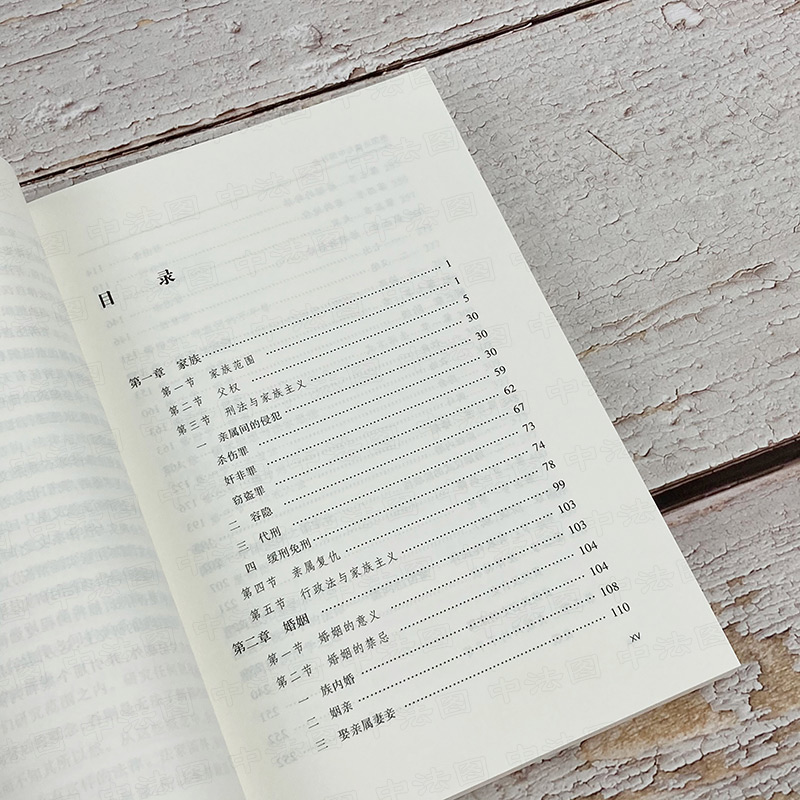 目 录
第一章 家族 1
第一节 家族范围 1
第二节 父权 5
第三节 刑法与家族主义 30
一 亲属间的侵犯 30
杀伤罪 30
奸非罪 59
窃盗罪 62
二 容隐 67
三 代刑 73
四 缓刑免刑 74
第四节 亲属复仇 78
第五节 行政法与家族主义 99
第二章 婚姻 103
第一节 婚姻的意义 103
第二节 婚姻的禁忌 104
一 族内婚 104
二 姻亲 108
三 娶亲属妻妾 110
xv
中法图